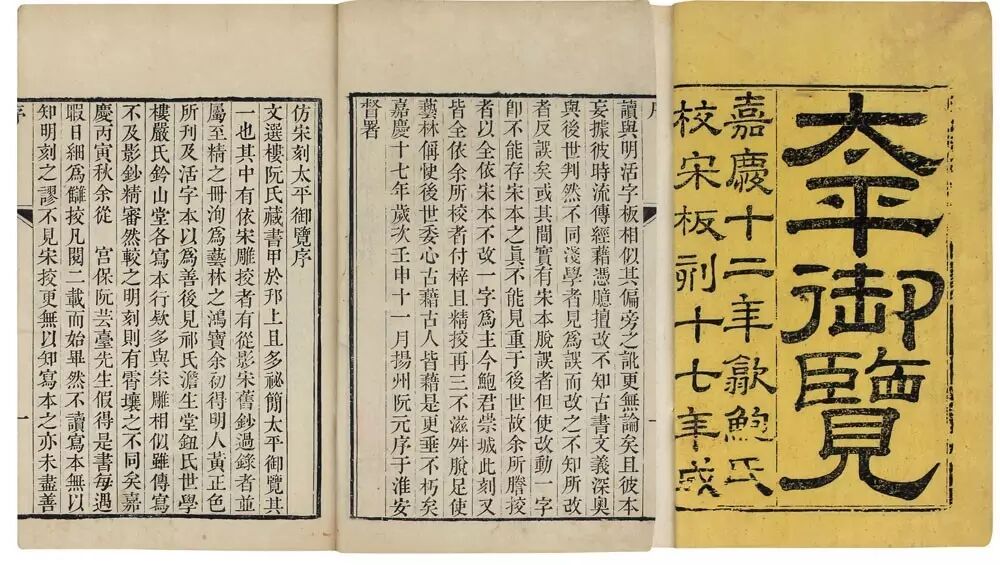 太平御覽
嘉慶十二年歙鮑氏
校宋板刻十七年成
讀與明活字板相似其偏旁之訛更無論矣且彼本
妄據彼時流傳經藉憑臆擅改不知古書文義深奧
與後世判然不同淺學者見爲誤而改之不知所改
者反誤矣或其間實有宋本脫誤者但使改動一字
卽不能存宋本之真不能見重于後世故余所謄挍
者以全依宋本不改一字爲主今鮑君崇城此刻又
皆全依余所挍者付梓且精挍再三不滋舛脫足使
藝林偁快後世委心古藉古人皆藉是更垂不朽矣
嘉慶十七年歲次壬申十一月揚州阮元序于淮安
督署
仿宋刻太平御覽序
文選樓阮氏藏書甲於邗上且多祕簡太平御覽其
一也其中有依宋雕挍者有從影宋舊鈔過錄者並
屬至精之冊洵爲藝林之鴻寶余初得明人黃正色
所刊及活字本以爲善後見祁氏澹生堂鈕氏世學
樓嚴氏鈐山堂各寫本行欵多與宋雕相似雖傳寫
不及影鈔精審然較之明刻則有霄壤之不同矣嘉
慶丙寅秋余從　宮保阮芸臺先生假得是書每遇
暇日細爲讎挍凡閱二載而始畢然不讀寫本無以
知明刻之謬不見宋挍更無以知寫本之亦未盡善
一